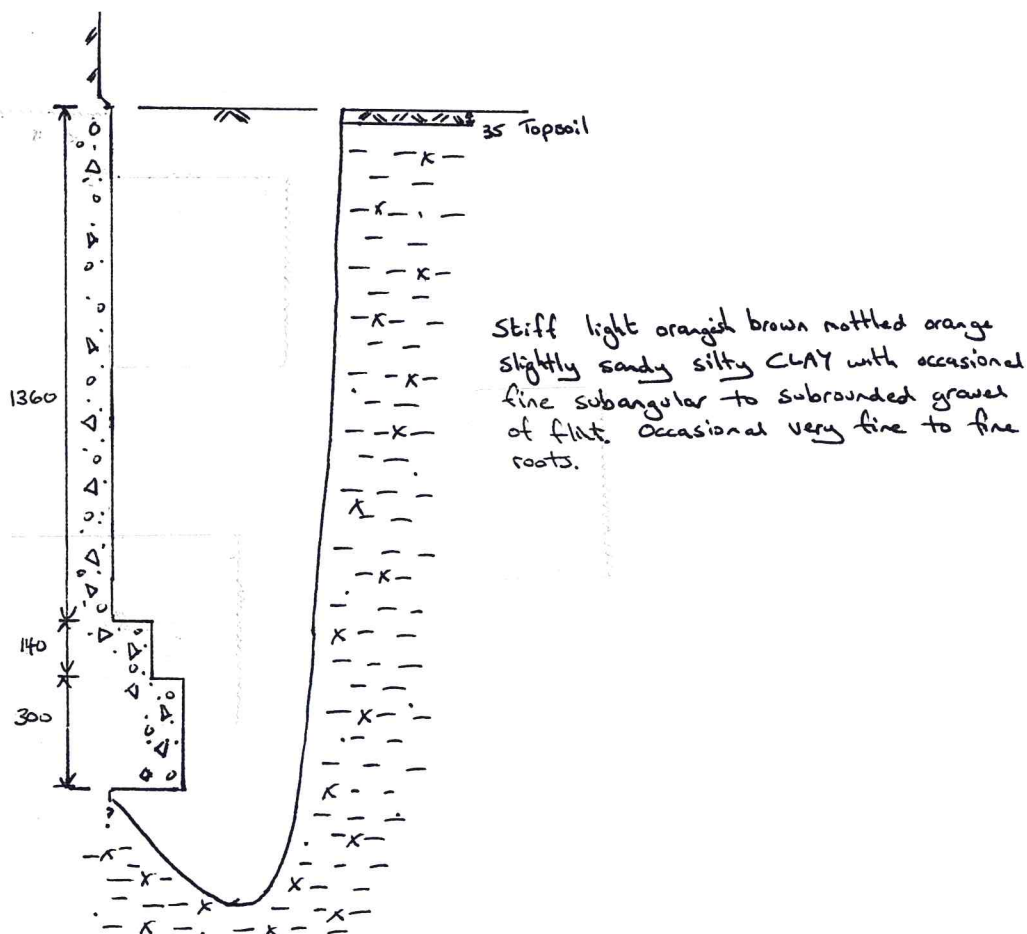 35 Topsoil
Stiff light orangish brown mottled orange
slightly sandy silty CLAY with occasional
fine subangular to subrounded gravel
of flint. Occasional very fine to fine
roots.
1360
140
300
?